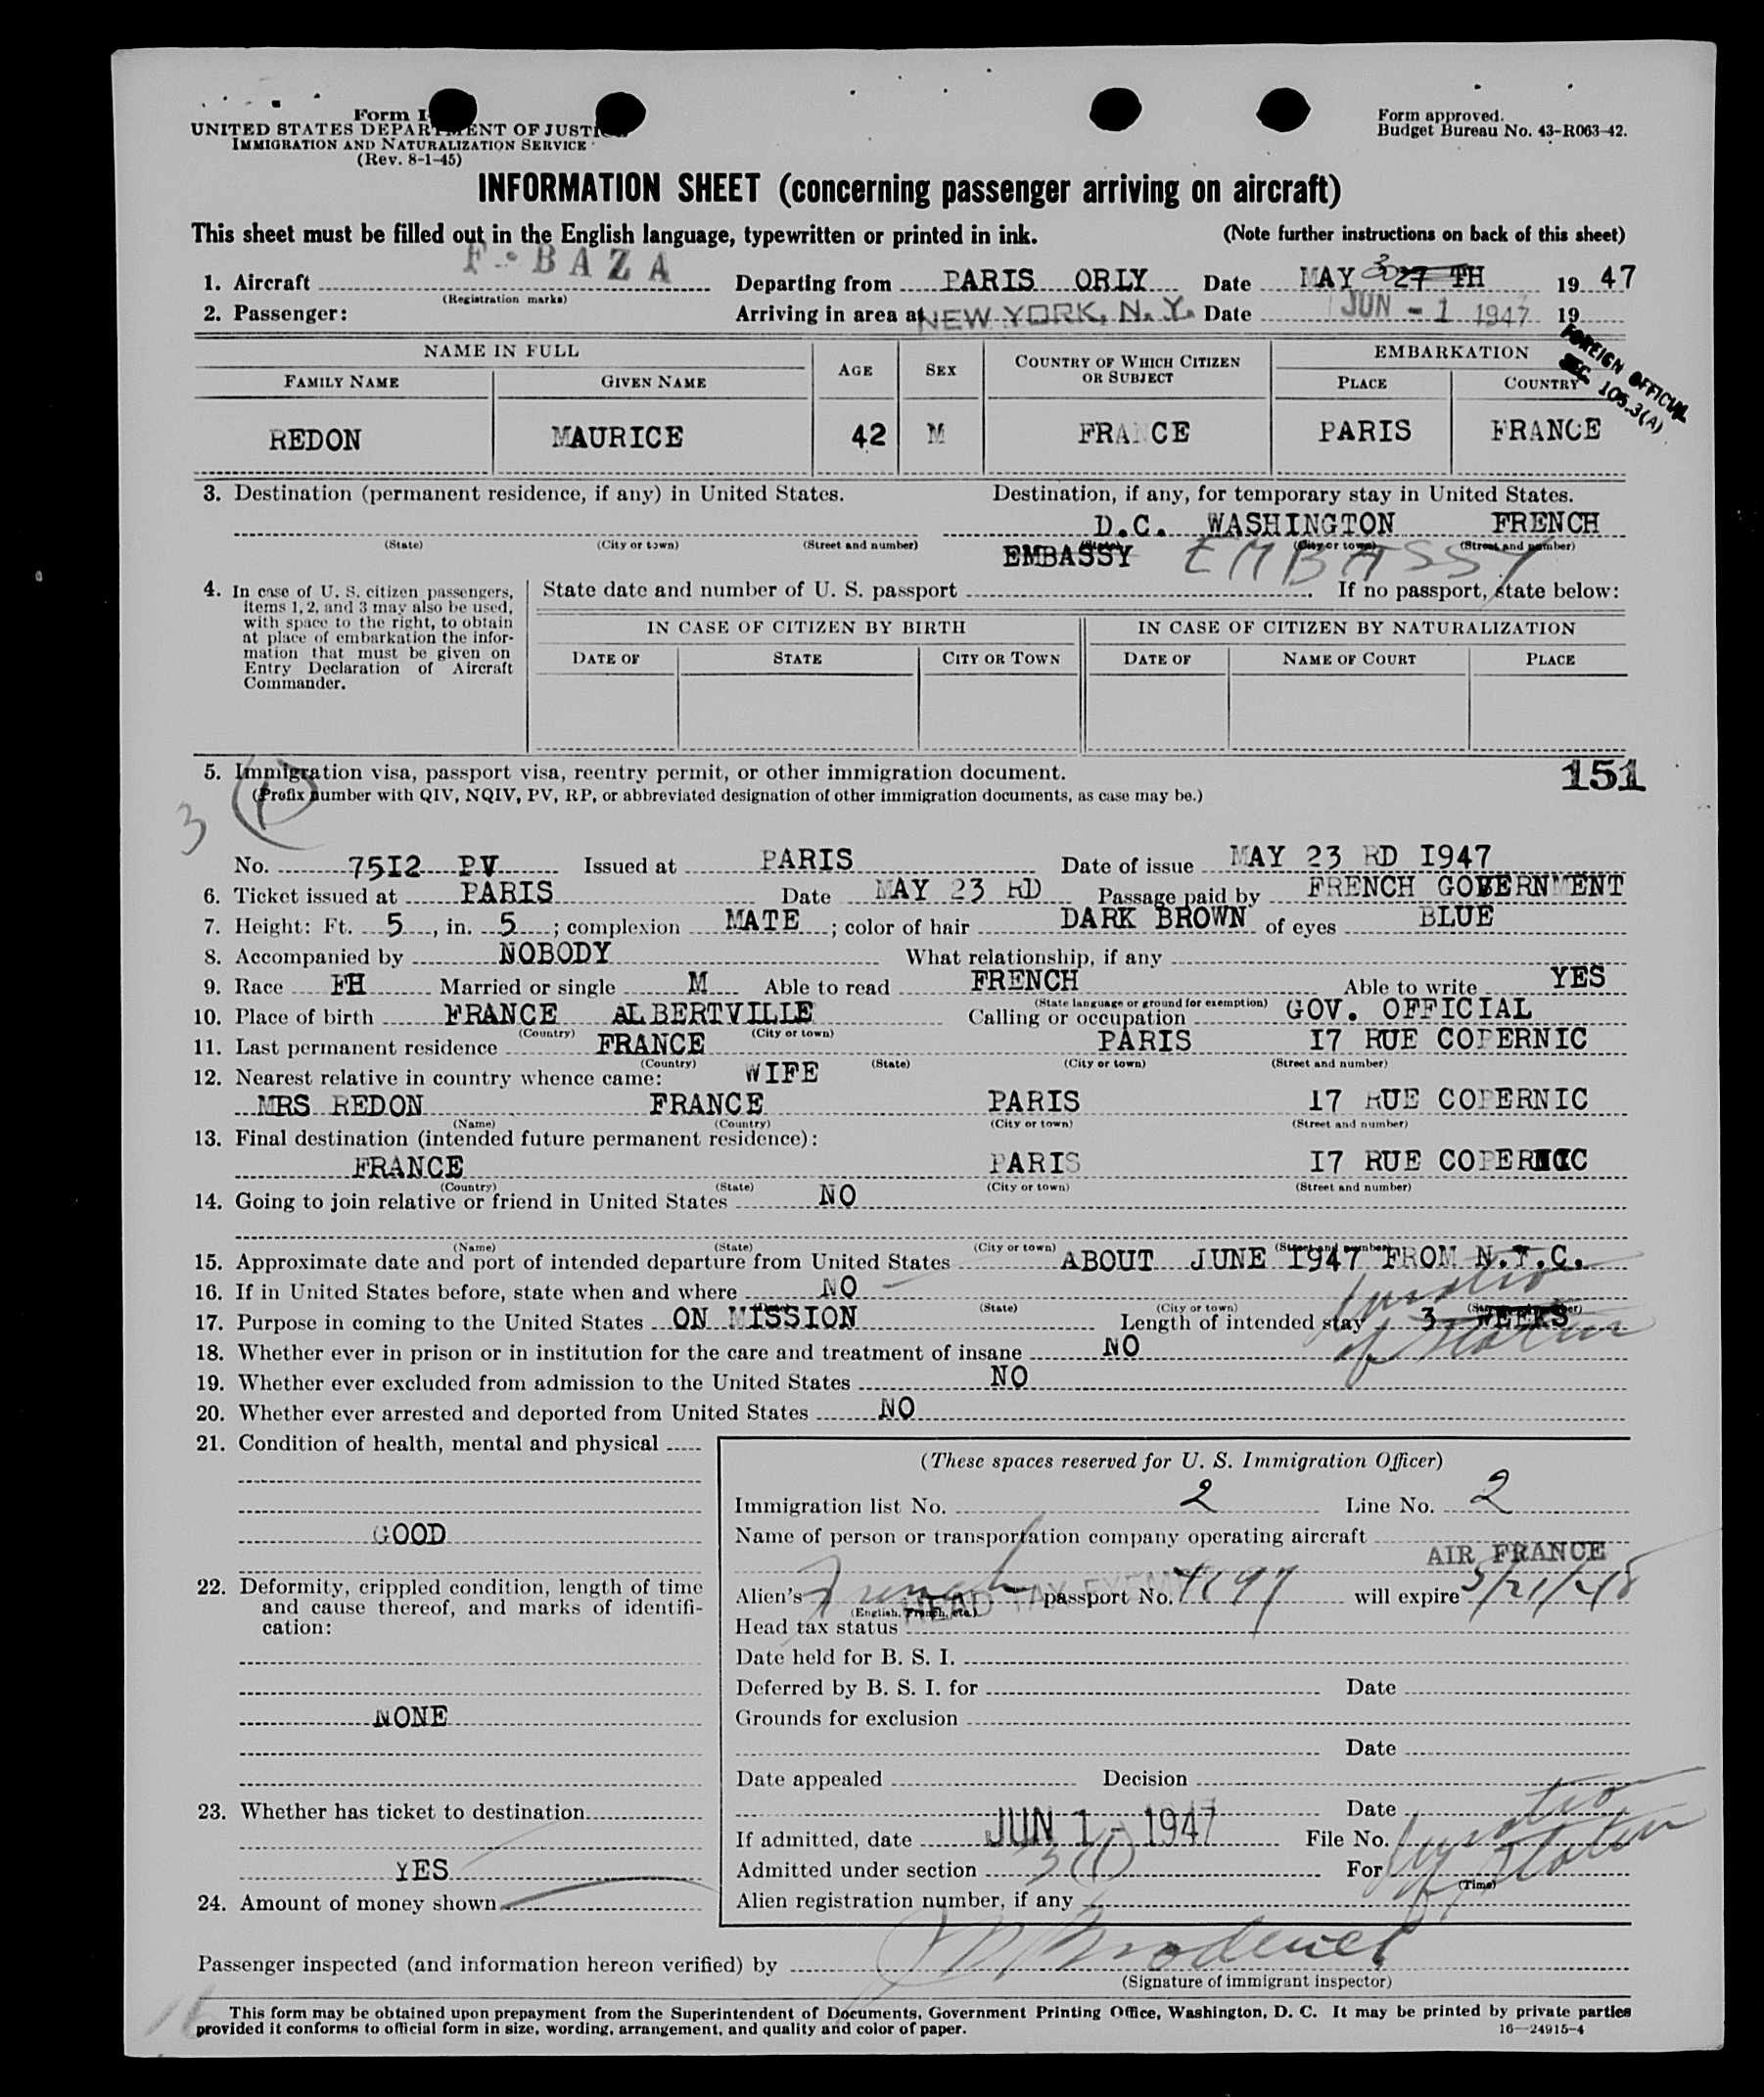 Form I
UNITED STATES DEPARTMENT OF JUSTICE
IMMIGRATION AND NATURALIZATION SERVICE
(Rev. 8-1-45)
Form approved.
Budget Bureau No. 43-R063-42.
INFORMATION SHEET (concerning passenger arriving on aircraft)
This sheet must be filled out in the English language, typewritten or printed in ink. (Note further instructions on back of this sheet)
1. Aircraft F-BAZA Departing from PARIS ORLY Date MAY 30 27 TH 1947
(Registration marks)
2. Passenger: Arriving in area at NEW YORK, N.Y. Date JUN - 1 1947 19
FOREIGN OFFICIAL
SEC 105.3(A)
NAME IN FULL AGE SEX COUNTRY OF WHICH CITIZEN OR SUBJECT EMBARKATION
FAMILY NAME GIVEN NAME PLACE COUNTRY
REDON MAURICE 42 M FRANCE PARIS FRANCE
3. Destination (permanent residence, if any) in United States. Destination, if any, for temporary stay in United States.
D.C. WASHINGTON FRENCH
(State) (City or town) (Street and number) (State) (City or town) (Street and number)
EMBASSY EMBASSY
4. In case of U. S. citizen passengers, items 1, 2, and 3 may also be used, with space to the right, to obtain at place of embarkation the information that must be given on Entry Declaration of Aircraft Commander.
State date and number of U. S. passport If no passport, state below:
IN CASE OF CITIZEN BY BIRTH IN CASE OF CITIZEN BY NATURALIZATION
DATE OF STATE CITY OR TOWN DATE OF NAME OF COURT PLACE
5. Immigration visa, passport visa, reentry permit, or other immigration document. 151
(Prefix number with QIV, NQIV, PV, RP, or abbreviated designation of other immigration documents, as case may be.)
3 (1)
No. 75I2 PV Issued at PARIS Date of issue MAY 23 RD I947
6. Ticket issued at PARIS Date MAY 23 RD Passage paid by FRENCH GOVERNMENT
7. Height: Ft. 5, in. 5; complexion MATE; color of hair DARK BROWN of eyes BLUE
8. Accompanied by NOBODY What relationship, if any
9. Race FH Married or single M Able to read FRENCH Able to write YES
(State language or ground for exemption)
10. Place of birth FRANCE ALBERTVILLE Calling or occupation GOV. OFFICIAL
(Country) (City or town)
11. Last permanent residence FRANCE PARIS I7 RUE COPERNIC
(Country) (State) (City or town) (Street and number)
12. Nearest relative in country whence came: WIFE
MRS REDON FRANCE PARIS 17 RUE COPERNIC
(Name) (Country) (City or town) (Street and number)
13. Final destination (intended future permanent residence):
FRANCE PARIS I7 RUE COPERNIC
(Country) (State) (City or town) (Street and number)
14. Going to join relative or friend in United States NO
(Name) (State) (City or town) (Street and number)
15. Approximate date and port of intended departure from United States ABOUT JUNE I947 FROM N.Y.C.
16. If in United States before, state when and where NO
(State) (City or town) (Street and number)
17. Purpose in coming to the United States ON MISSION Length of intended stay 3 WEEKS
duration of status
18. Whether ever in prison or in institution for the care and treatment of insane NO
19. Whether ever excluded from admission to the United States NO
20. Whether ever arrested and deported from United States NO
21. Condition of health, mental and physical
GOOD
22. Deformity, crippled condition, length of time and cause thereof, and marks of identification:
NONE
23. Whether has ticket to destination
YES
24. Amount of money shown
(These spaces reserved for U. S. Immigration Officer)
Immigration list No. 2 Line No. 2
Name of person or transportation company operating aircraft
AIR FRANCE
Alien's French passport No. 4197 will expire 5/21/48
(English, French, etc.)
HEAD TAX EXEMPT
Head tax status
Date held for B. S. I.
Deferred by B. S. I. for Date
Grounds for exclusion
Date
Date appealed Decision
Date
If admitted, date JUN 1 - 1947 File No.
Admitted under section 3(1) For duration of status
(Time)
Alien registration number, if any
Passenger inspected (and information hereon verified) by
(Signature of immigrant inspector)
This form may be obtained upon prepayment from the Superintendent of Documents, Government Printing Office, Washington, D. C. It may be printed by private parties
provided it conforms to official form in size, wording, arrangement, and quality and color of paper. 16—24915-4